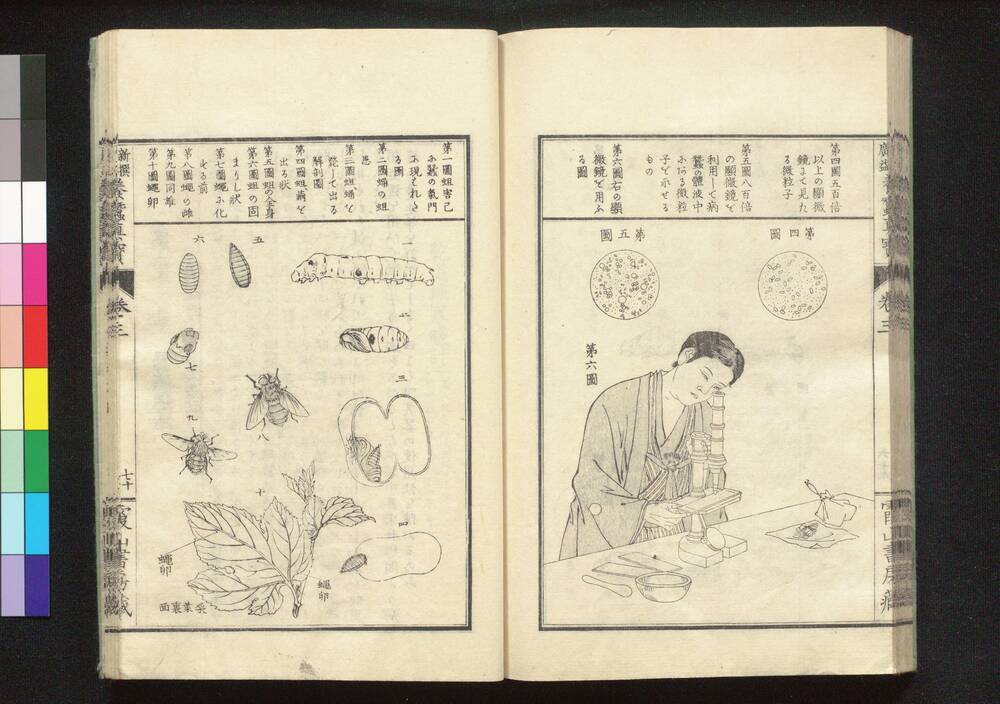 第四圖五百倍
以上の顯微
鏡まて見た
る微粒子
第五圖八百倍
の顯微鏡を
利用して病
蠶の體液中
にある微粒
子を示せる
もの
第六圖右の顯
微鏡を用ふ
る圖
第四圖
第五圖
第六圖
卷三
第一圖蛆害己
に蠶の氣門
に現それた
る圖
第二圖蛹の蛆
患
第三圖蛆蛹を
毙して出る
解剖圖
第四圖蛆繭を
出る狀
第五圖蛆の全身
第六圖蛆の固
まりし狀
第七圖蠅に化
せる前
第八圖蠅の雌
第九圖同雄
第十圖蠅卵
一
二
三
四
五
六
七
八
九
十
蠅卵
蠅卵
桒葉裏面
新撰
養蠶真寶
卷三
七十
霞山書房藏